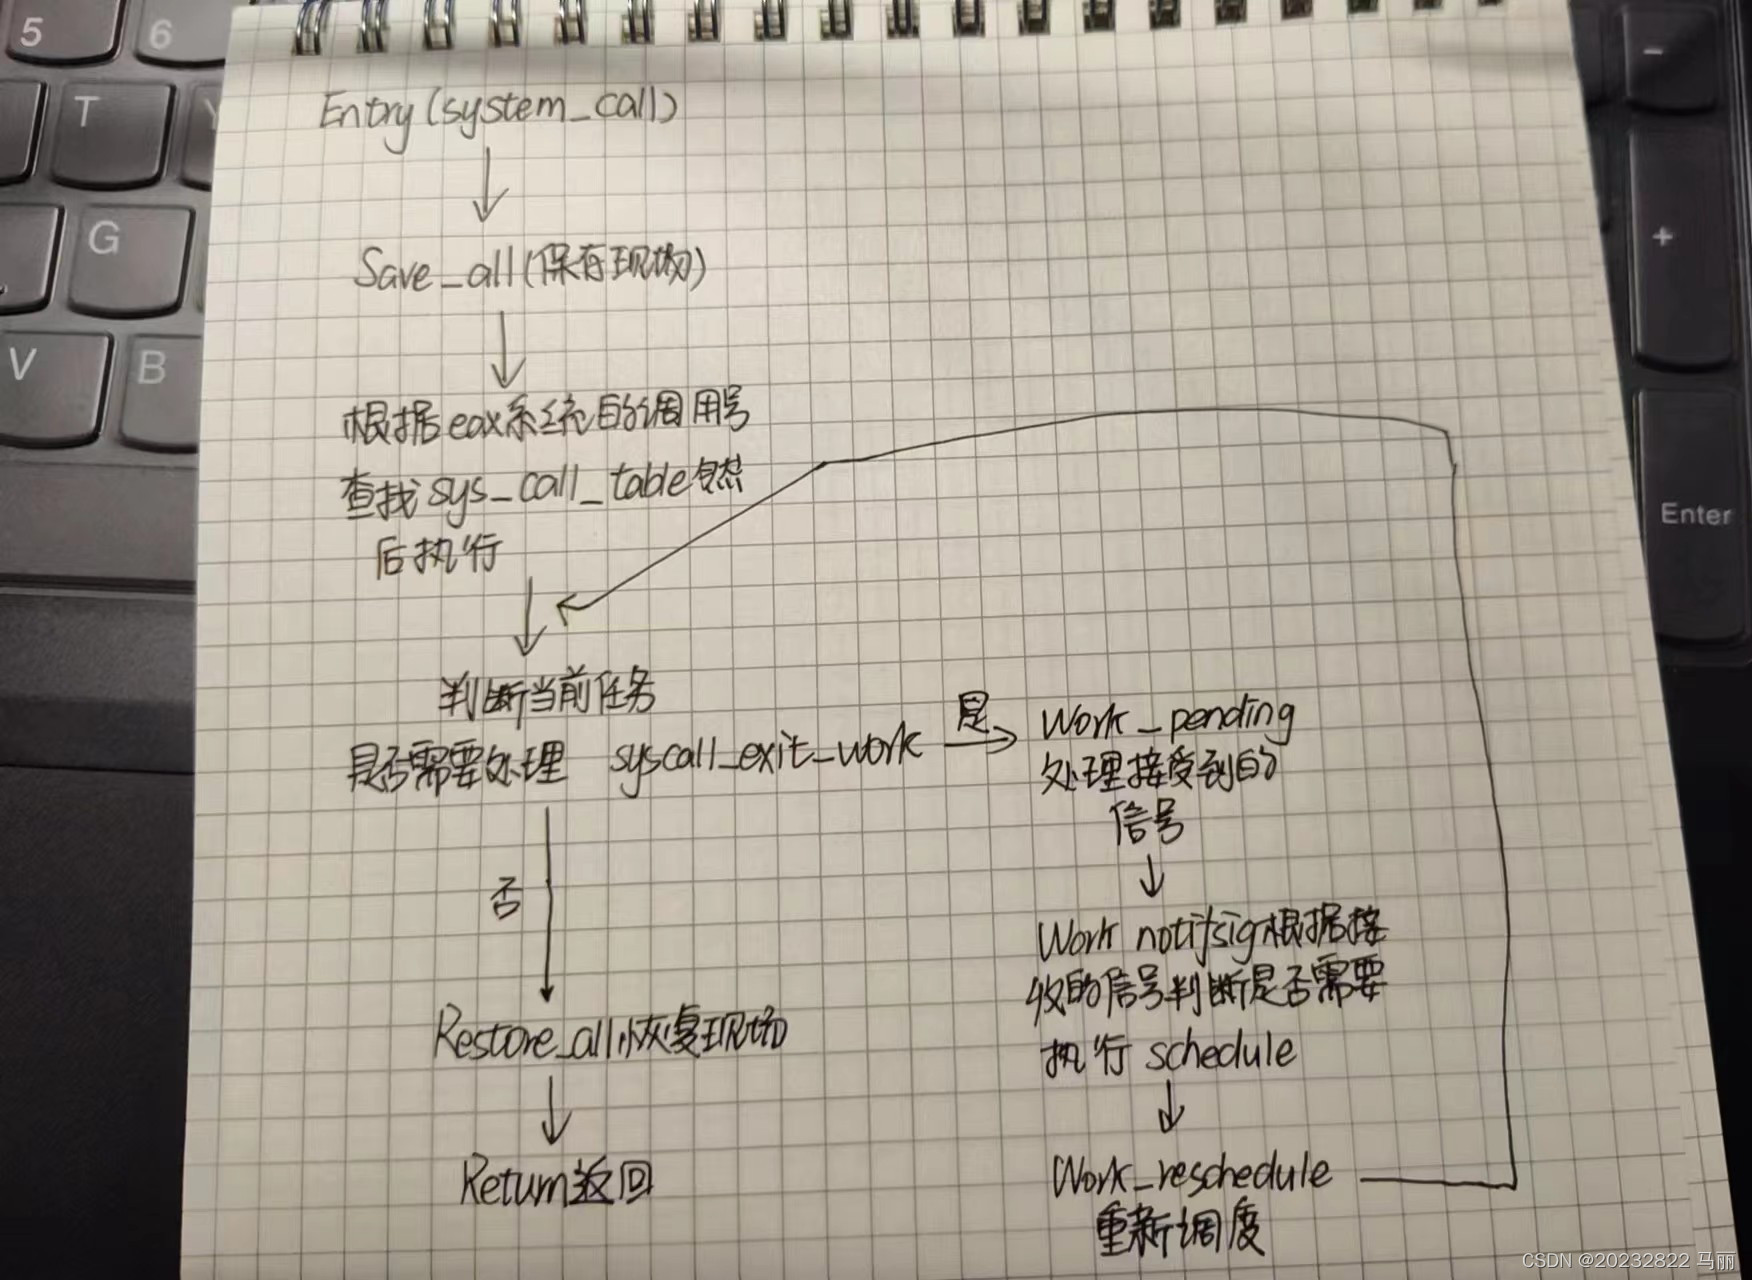 5
6
T
G
V
B
-
+
Enter
Entry(system_call)
Save_all(保存现场)
根据eax系统的调用号
查找sys_call_table然
后执行
判断当前任务
是否需要处理 syscall_exit_work
是
Work_pending
处理接受到的
信号
否
Work notifsig根据接
收的信号判断是否需要
执行 schedule
Restore_all恢复现场
Return返回
Work_reschedule
重新调度
CSDN @20232822 马丽